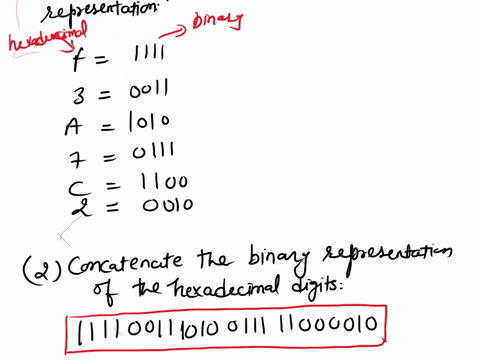 representation:
hexadecimal binary
f = 1111
3 = 0011
A = 1010
7 = 0111
C = 1100
2 = 0010
(2) Concatenate the binary representation
of the hexadecimal digits:
1111 0011 1010 0111 11000010